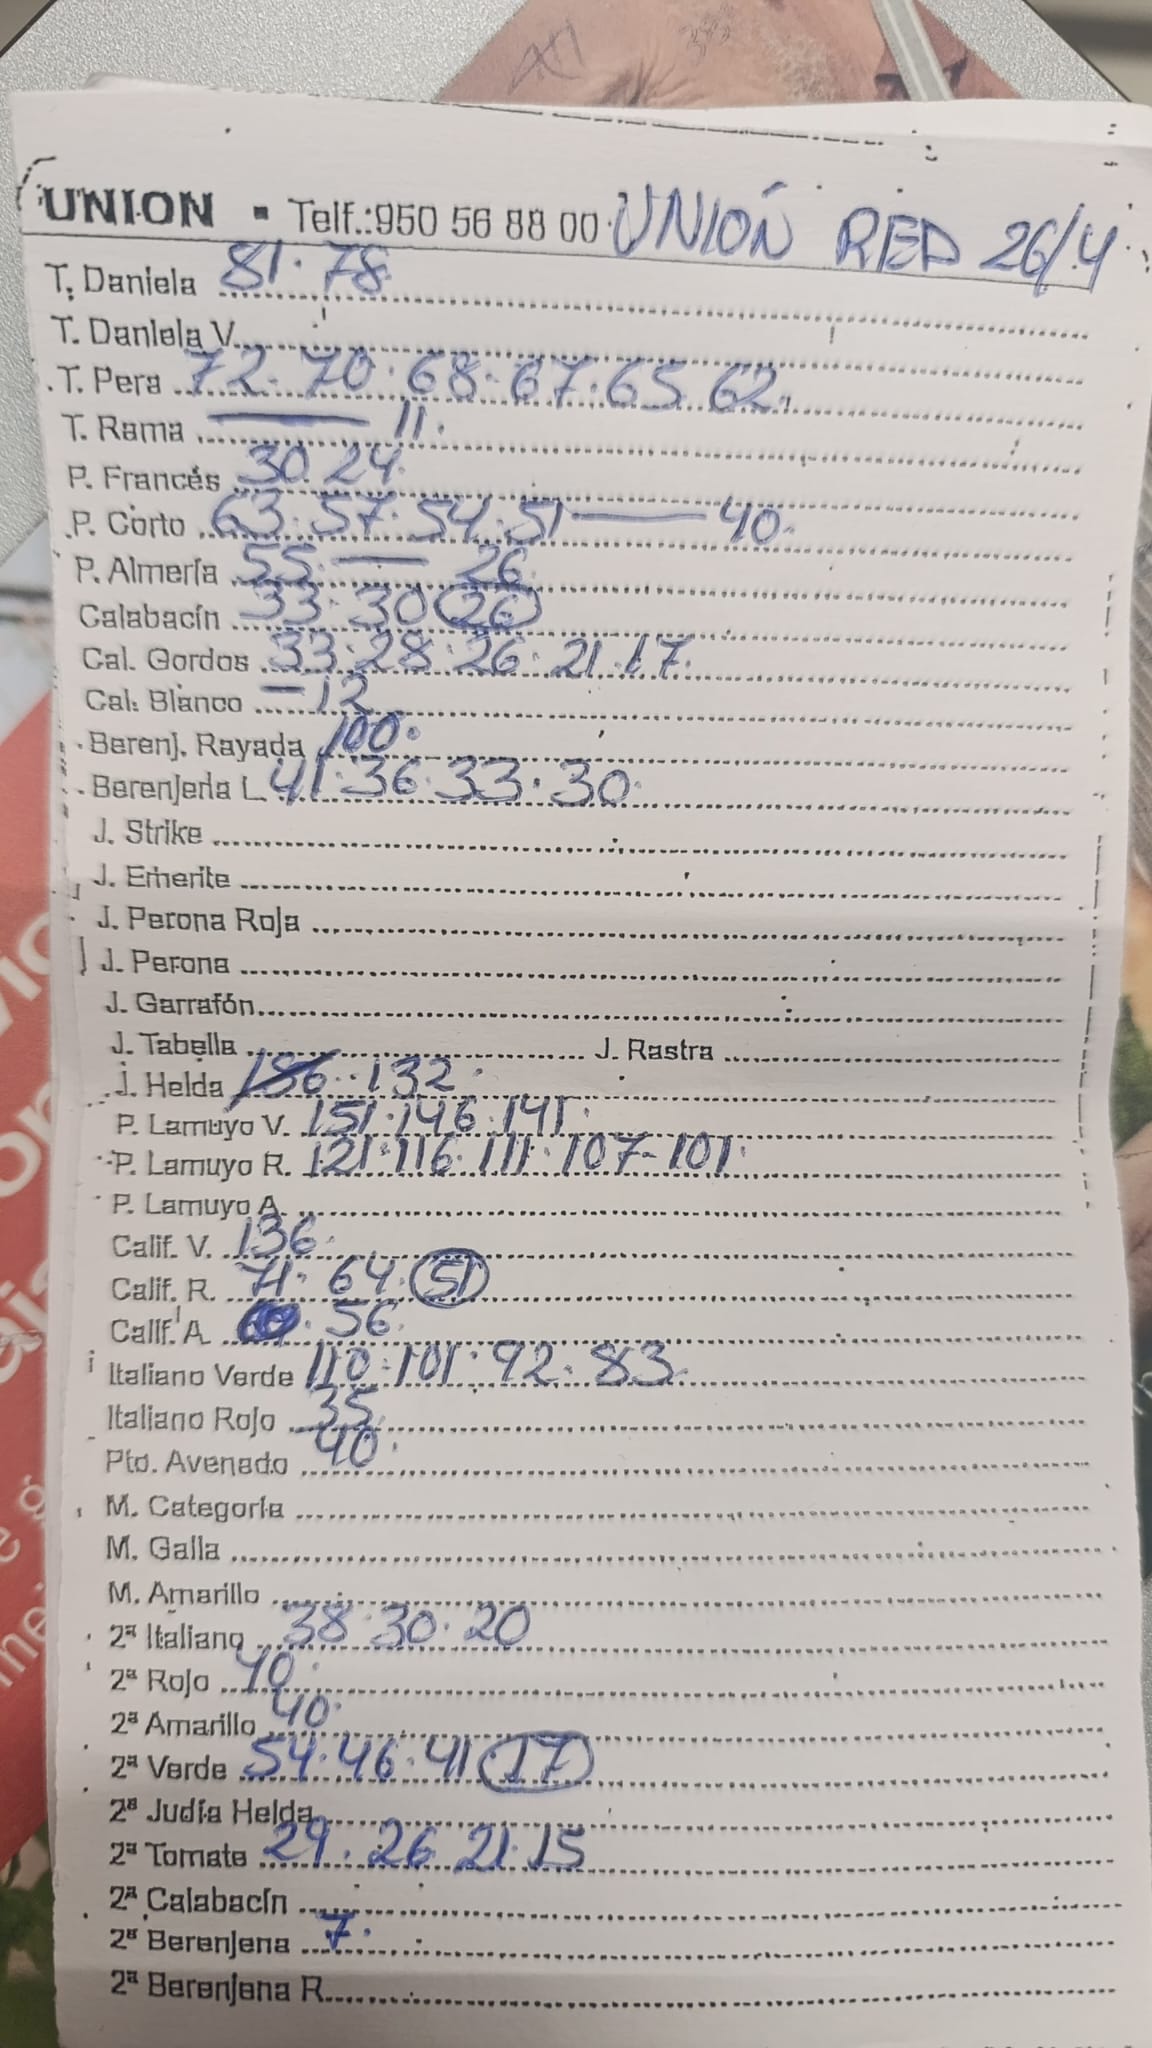 UNION ▪ Telf.:950 56 88 00 UNIÓN RED 26/4
T. Daniela 81. 78
T. Daniela V.
T. Pera 72. 70. 68. 67. 65 62.
T. Rama —— 11.
P. Francés 30. 24.
P. Corto 63. 57. 54. 51 —— 40.
P. Almería 55 —— 26
Calabacín 33. 30 26
Cal. Gordos 33. 28. 26. 21. 17.
Cal. Blanco — 12
Berenj. Rayada 100.
Berenjena L. 41. 36. 33. 30
J. Strike
J. Emerite
J. Perona Roja
J. Perona
J. Garrafón
J. Tabella J. Rastra
J. Helda 186. 132.
P. Lamuyo V. 151. 146. 141.
P. Lamuyo R. 121. 116. 111. 107- 101.
P. Lamuyo A.
Calif. V. 136.
Calif. R. 71. 64. 51
Calif. A. 56.
Italiano Verde 110. 101. 92. 83.
Italiano Rojo 35
Pto. Avenado 40.
M. Categoría
M. Galla
M. Amarillo
2ª Italiano 38. 30. 20
2ª Rojo 40.
2ª Amarillo 40.
2ª Verde 54. 46. 41 17
2ª Judía Helda
2ª Tomate 29. 26 21. 15
2ª Calabacín
2ª Berenjena 7.
2ª Berenjena R.